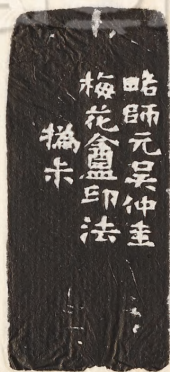 略師元吳仲圭
梅花盦印法
撝尗